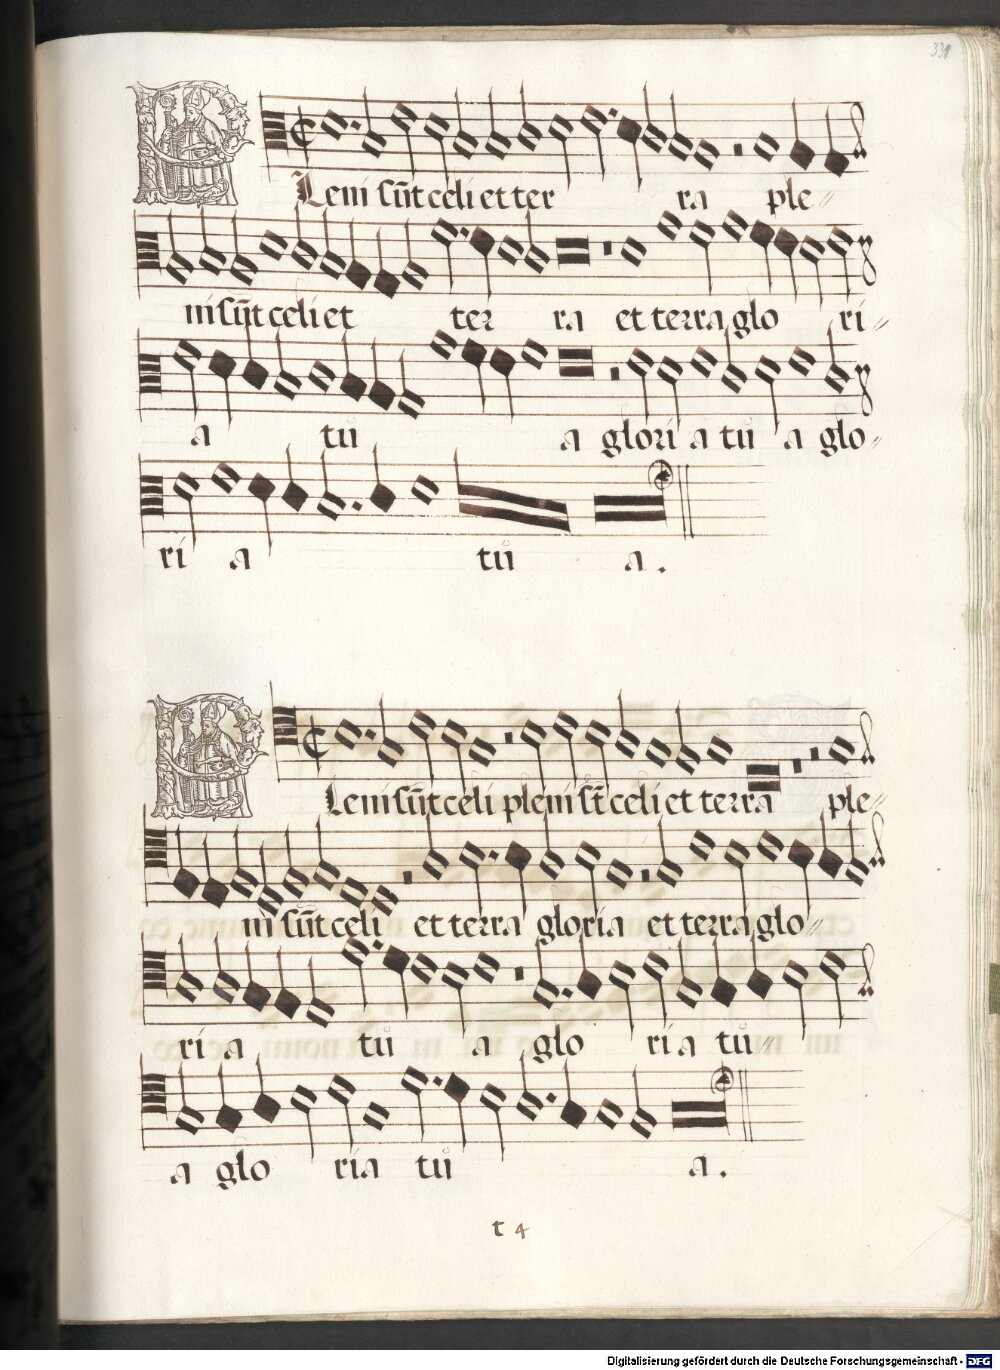 331
PLeni sūt celi et ter ra ple〃
ni sūt celi et ter ra et terra glo ri〃
a tu a glori a tu a glo〃
ri a tu a.
PLeni sūt celi pleni sūt celi et terra ple〃
ni sūt celi et terra gloria et terra glo〃
ri a tu a glo ri a tu〃
a glo ria tu a.
t 4
Digitalisierung gefördert durch die Deutsche Forschungsgemeinschaft - DFG